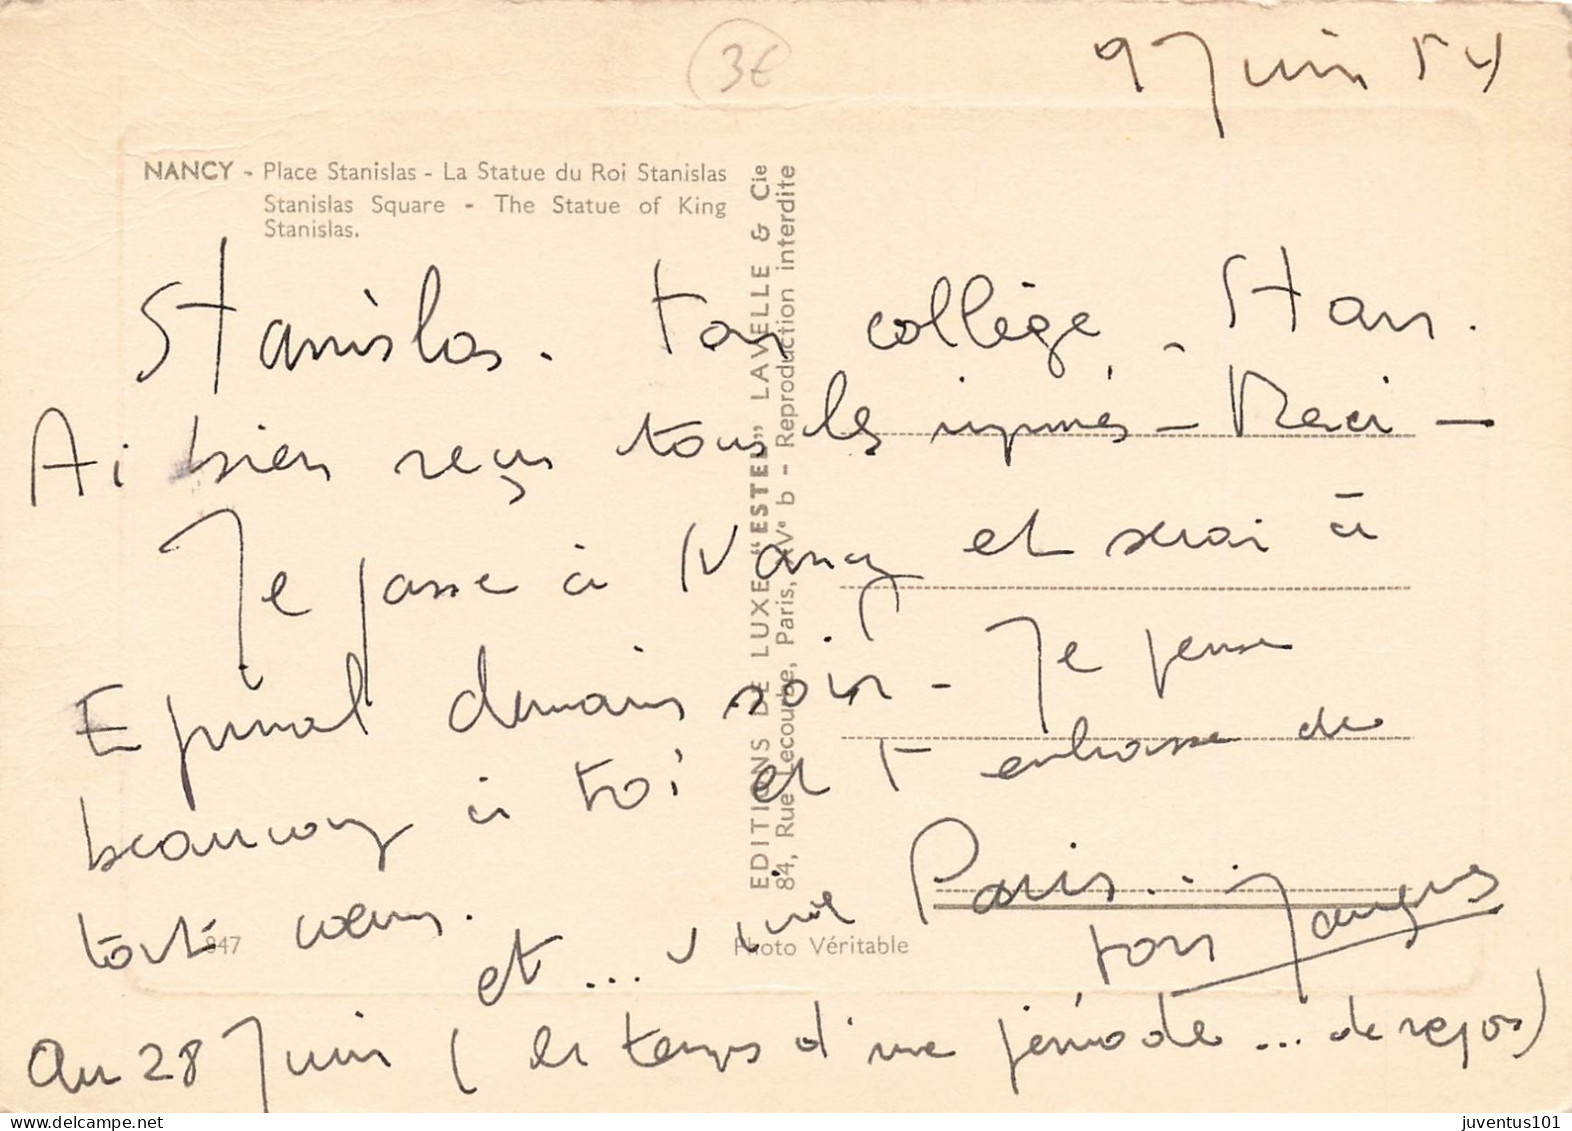 3€
9 Juin 54
NANCY - Place Stanislas - La Statue du Roi Stanislas
Stanislas Square - The Statue of King
Stanislas.
EDITIONS DE LUXE "ESTEL" LAVELLE & Cie
84, Rue Lecourbe, Paris, XVe b - Reproduction interdite
Stanislas. ton collège - Stan.
Ai bien reçu tous les imprimés - Merci -
Je passe à Nancy et serai à
Epinal demain soir - Je pense
beaucoup à toi et t'embrasse de
tout cœur.
et ... vive Paris...
ton Jacques
847
Photo Véritable
Au 28 Juin ( le temps d'une période ... de repos)
juventus101